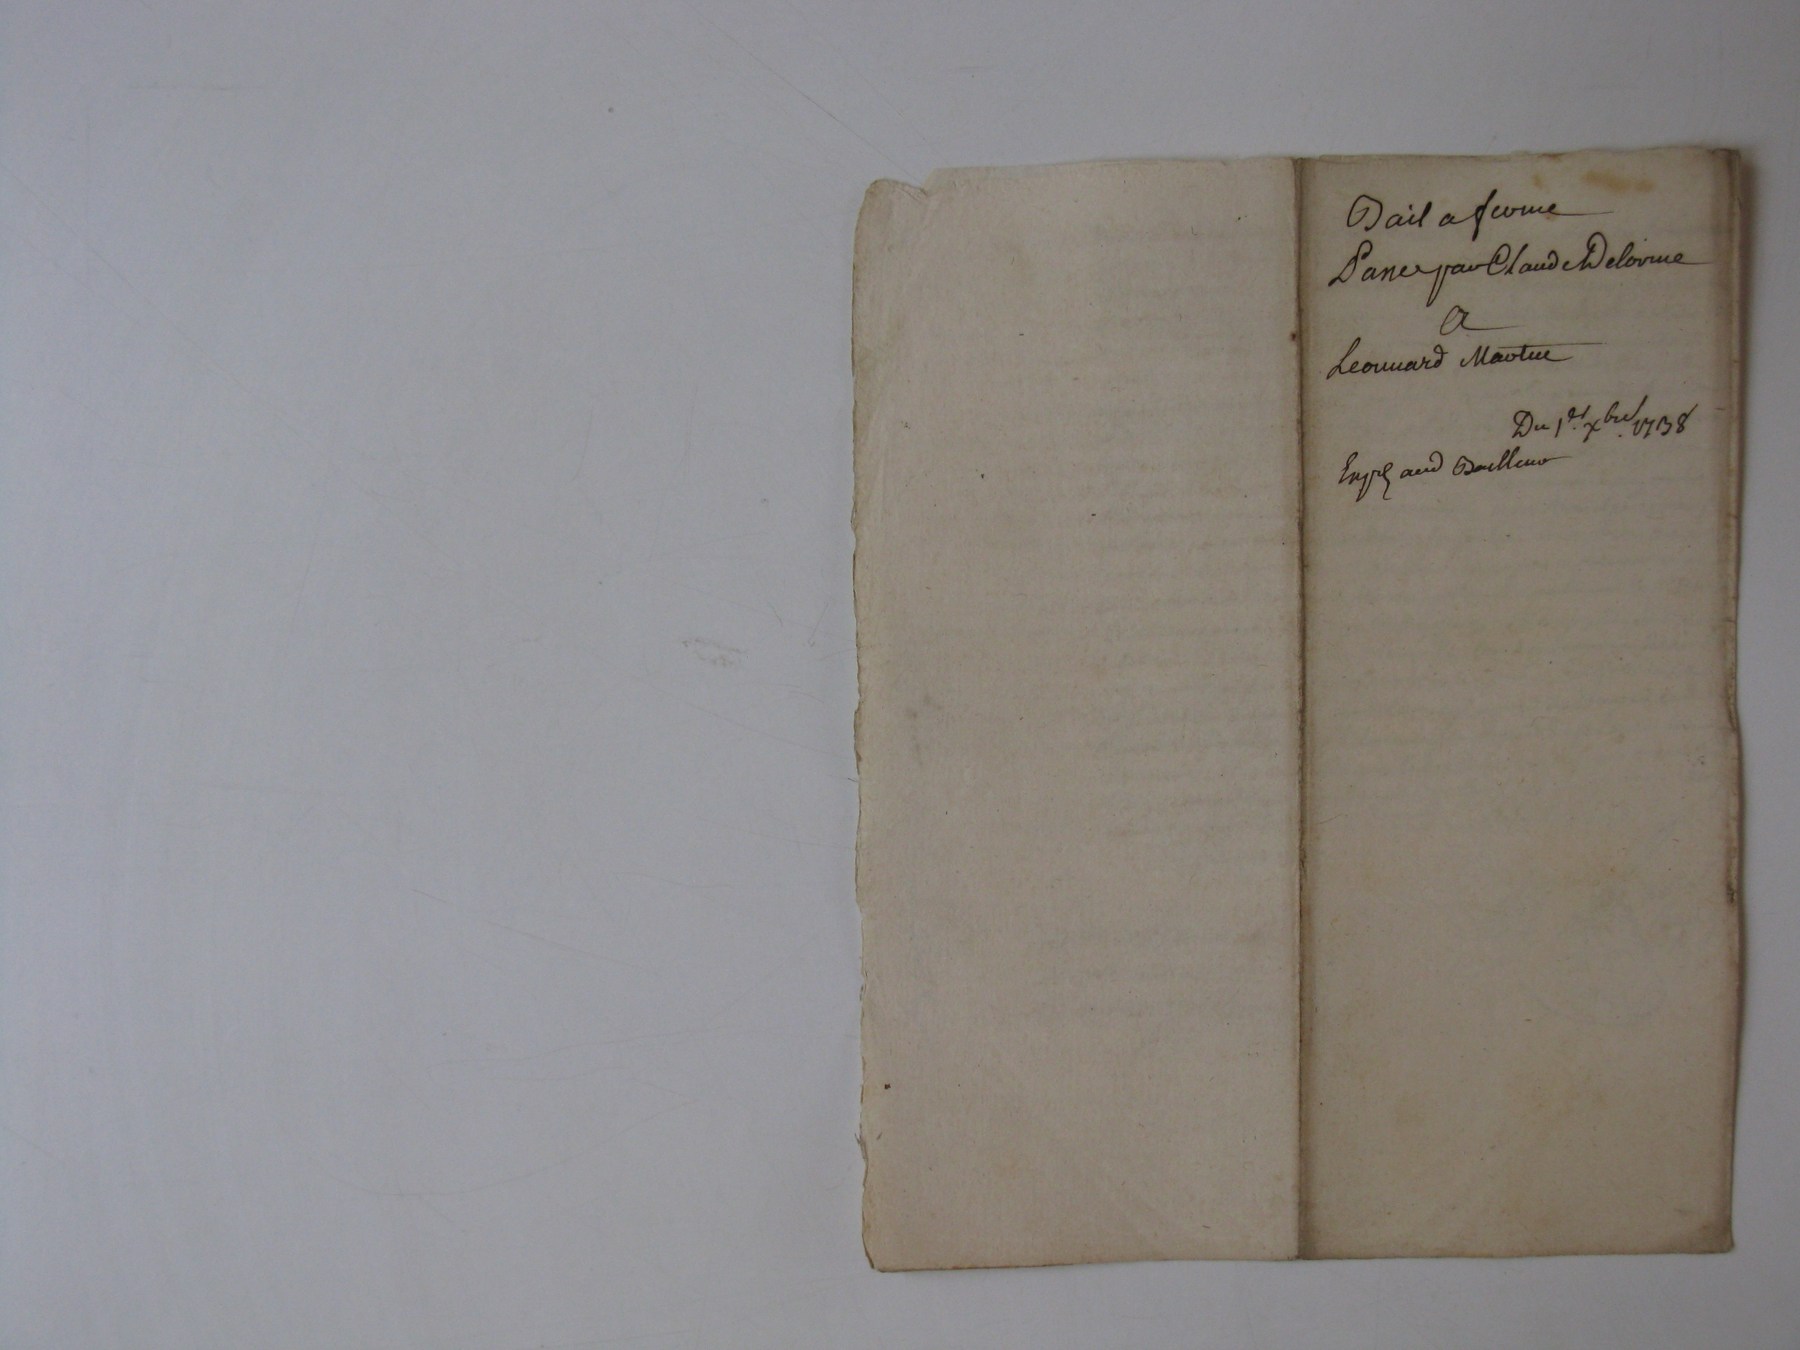 Bail a ferme
Passé par Claude Delorme
A
Leonnard Martin
Du 1er. xbre. 1738
Expé aud Bailleur